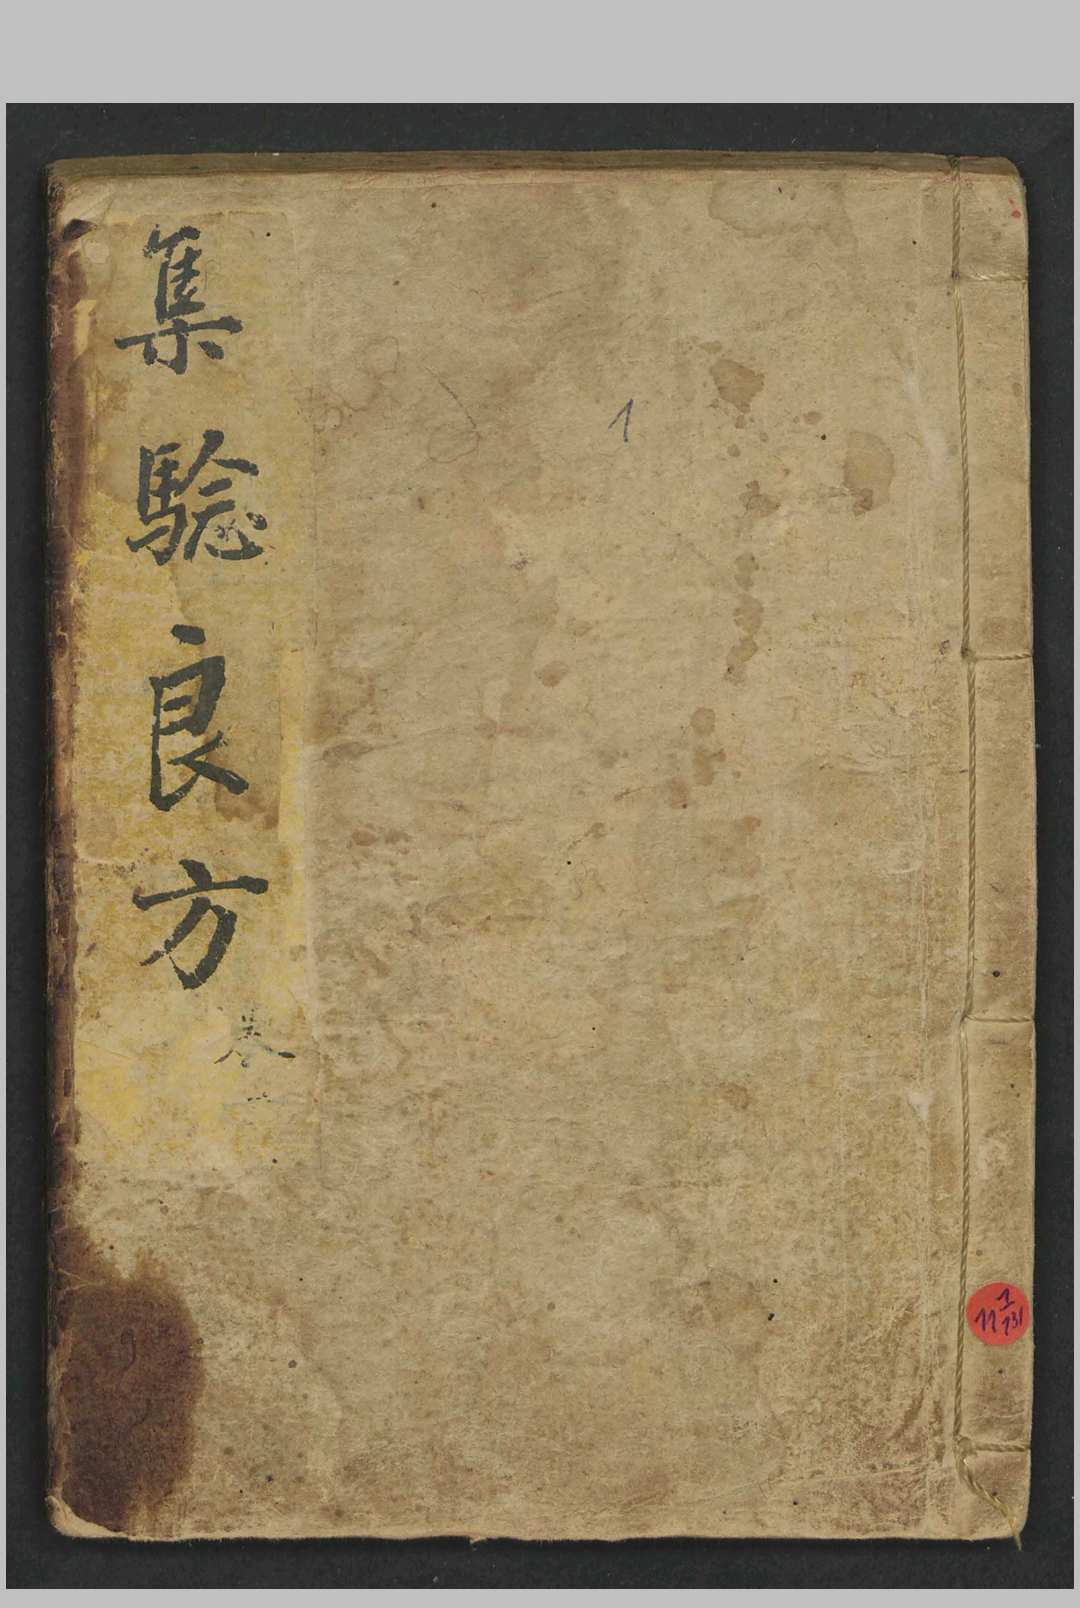 集騐良方
卷一
1
11 1/131